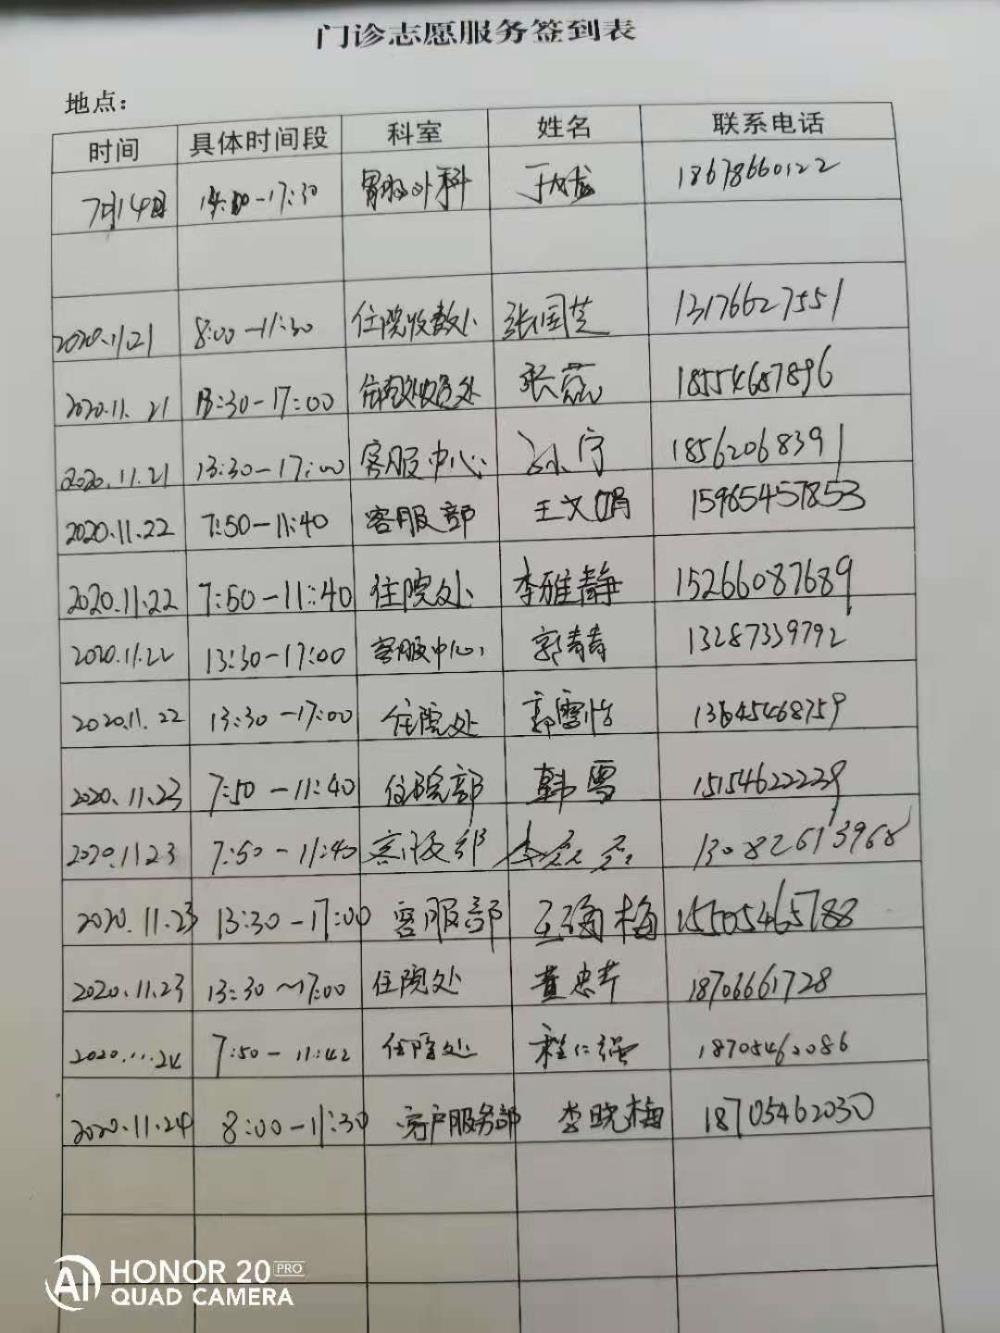 门诊志愿服务签到表
地点：
时间 具体时间段 科室 姓名 联系电话
7月14日 14:00-17:30 胃肠外科 18678660122
2020.11.21 8:00-11:30 住院收款处 张国芝 13176627551
2020.11.21 13:30-17:00 张蕊 18554687896
2020.11.21 13:30-17:00 客服中心 孙宁 18562068391
2020.11.22 7:50-11:40 客服部 王文娟 15965457853
2020.11.22 7:50-11:40 住院处 李雅静 15266087689
2020.11.22 13:30-17:00 客服中心 郭青青 13287339792
2020.11.22 13:30-17:00 住院处 郭雪怡 13645468759
2020.11.23 7:50-11:40 住院部 韩雪 15154622239
2020.11.23 7:50-11:40 客服部 13082613968
2020.11.23 13:30-17:00 客服部 15505465788
2020.11.23 13:30~17:00 住院处 董忠芹 18706661728
2020....24 7:50-11:42 住院处 程仁强 18705462086
2020.11.24 8:00-11:30 客户服务部 李晓梅 18705462030
AI HONOR 20 PRO
QUAD CAMERA